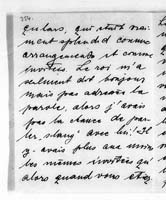 254.
qui était vrai-
ment splendid comme
arrangements et comme
invitées. Le roi m'a
seul. dit bonjour
mais pas adressé la
parole, alors j'avais
pas la chance de par-
ler, slang avec lui! Il
y avais plus que moins
les mêmes invitées qu'
alors quand vous êtes